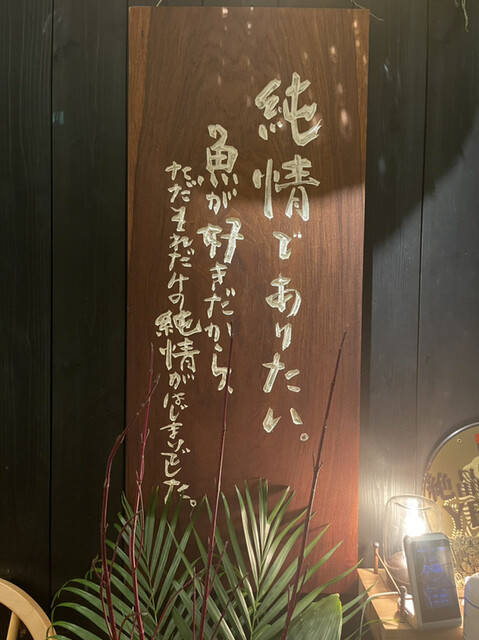 純情でありたい。
魚が好きだから、
ただそれだけの純情がはじまりでした。